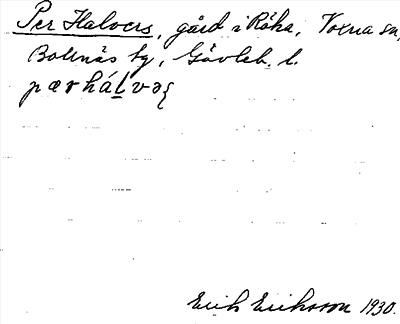 Per Halvers, gård i Råka, Voxna sn,
Bollnäs tg, Gävleb. l.
pærhálvəʂ
Erik Eriksson 1930.